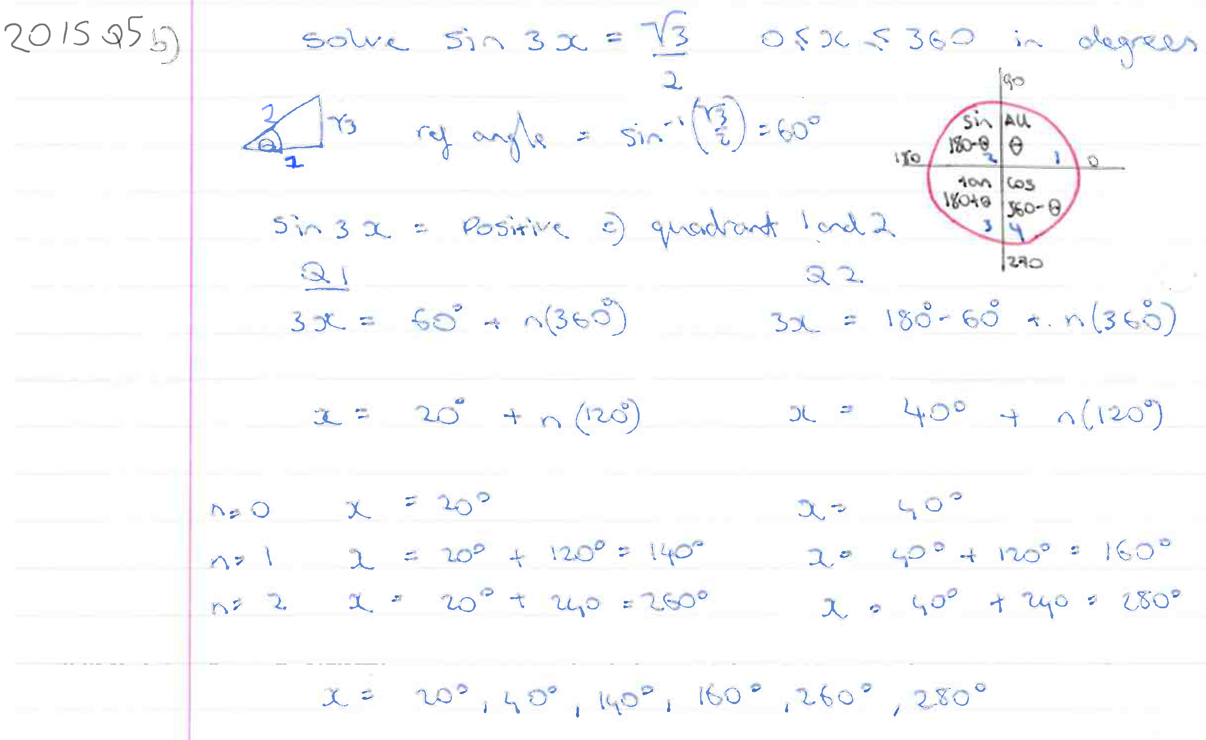 2015 Q5 b) solve sin 3x = √3/2 0 ≤ x ≤ 360 in degrees
90
2 √3 ref angle = sin⁻¹(√3/2) = 60°
θ 1
sin All
180-θ θ
180 2 1 0
tan cos
180+θ 360-θ
3 4
270
sin 3x = Positive ⇒ quadrant 1 and 2
Q1 Q2
3x = 60° + n(360°) 3x = 180° - 60° + n(360°)
x = 20° + n(120°) x = 40° + n(120°)
n=0 x = 20° x = 40°
n=1 x = 20° + 120° = 140° x = 40° + 120° = 160°
n=2 x = 20° + 240 = 260° x = 40° + 240 = 280°
x = 20°, 40°, 140°, 160°, 260°, 280°